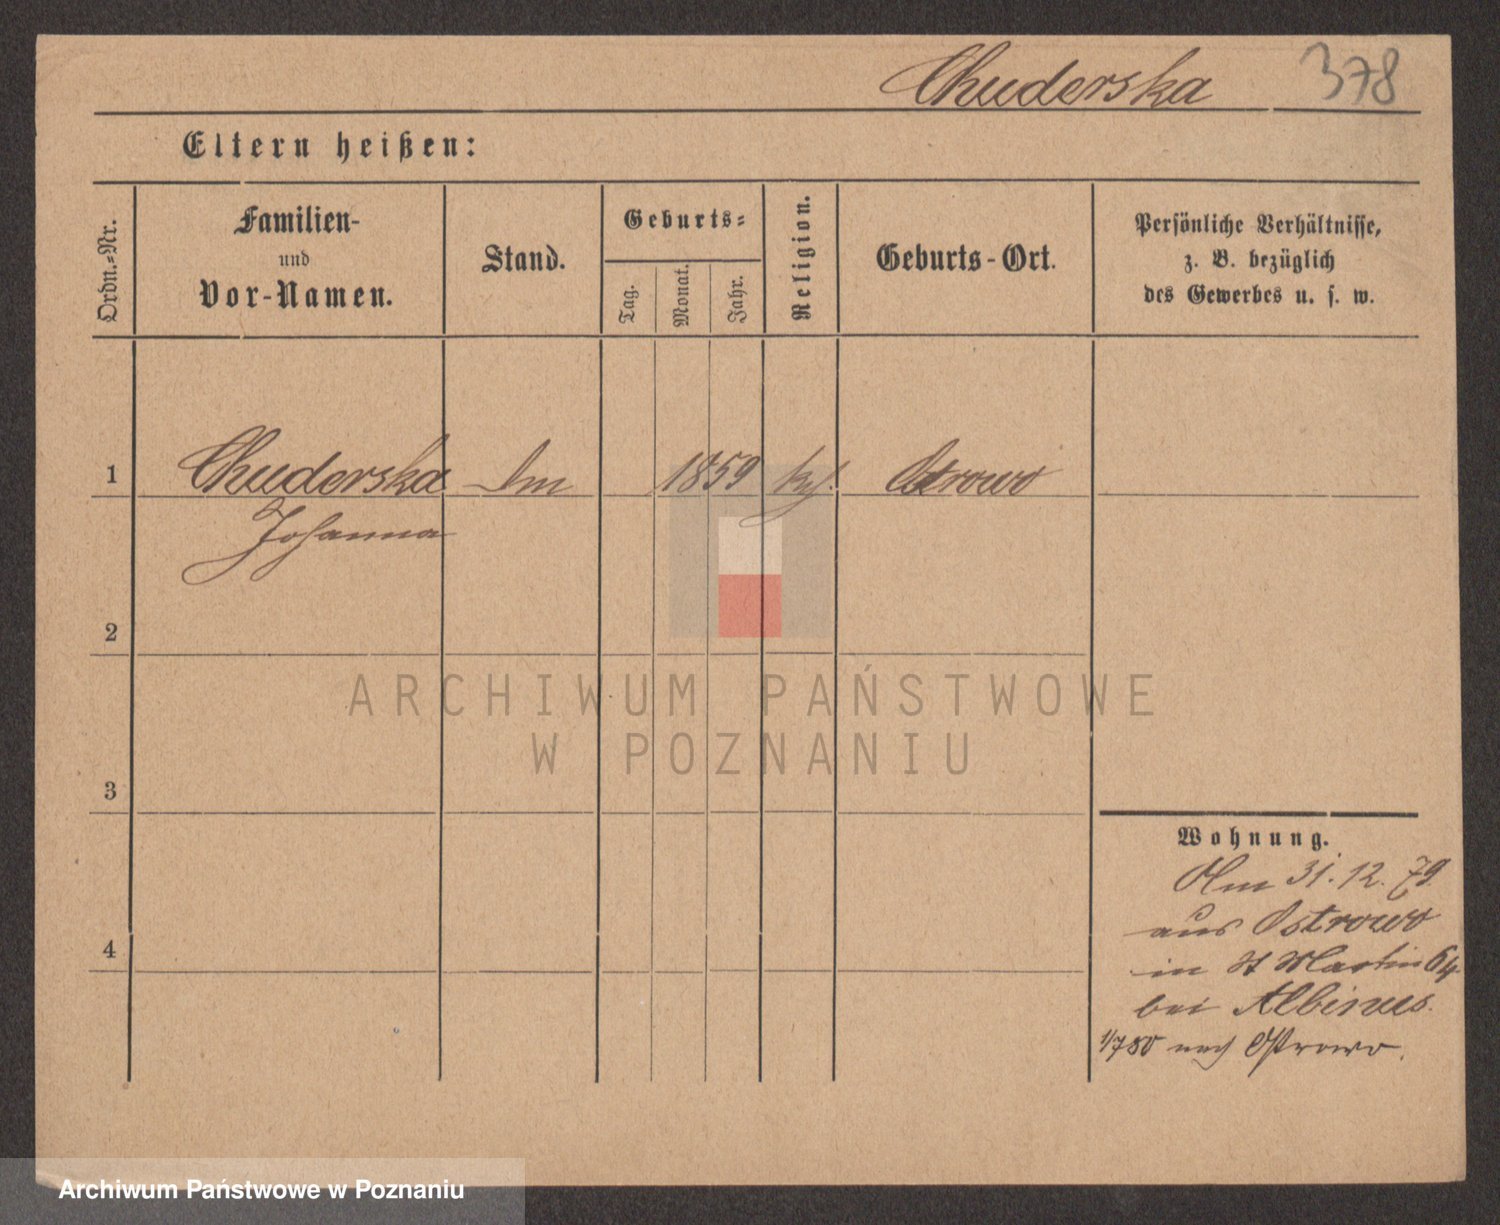 Chuderska 378
Eltern heißen:
Ordn.-Nr.
Familien-
und
Vor-Namen.
Stand.
Geburts-
Tag.
Monat.
Jahr.
Religion.
Geburts-Ort.
Persönliche Verhältnisse,
z. B. bezüglich
des Gewerbes u. s. w.
1 Chuderska 1859 Ostrowo
Johanna
2
3
4
Wohnung.
Am 31. 12. 79
aus Ostrowo
in St Martin 64
bei Albinus.
1/7 80 nach Ostrowo.
ARCHIWUM PAŃSTWOWE
W POZNANIU
Archiwum Państwowe w Poznaniu